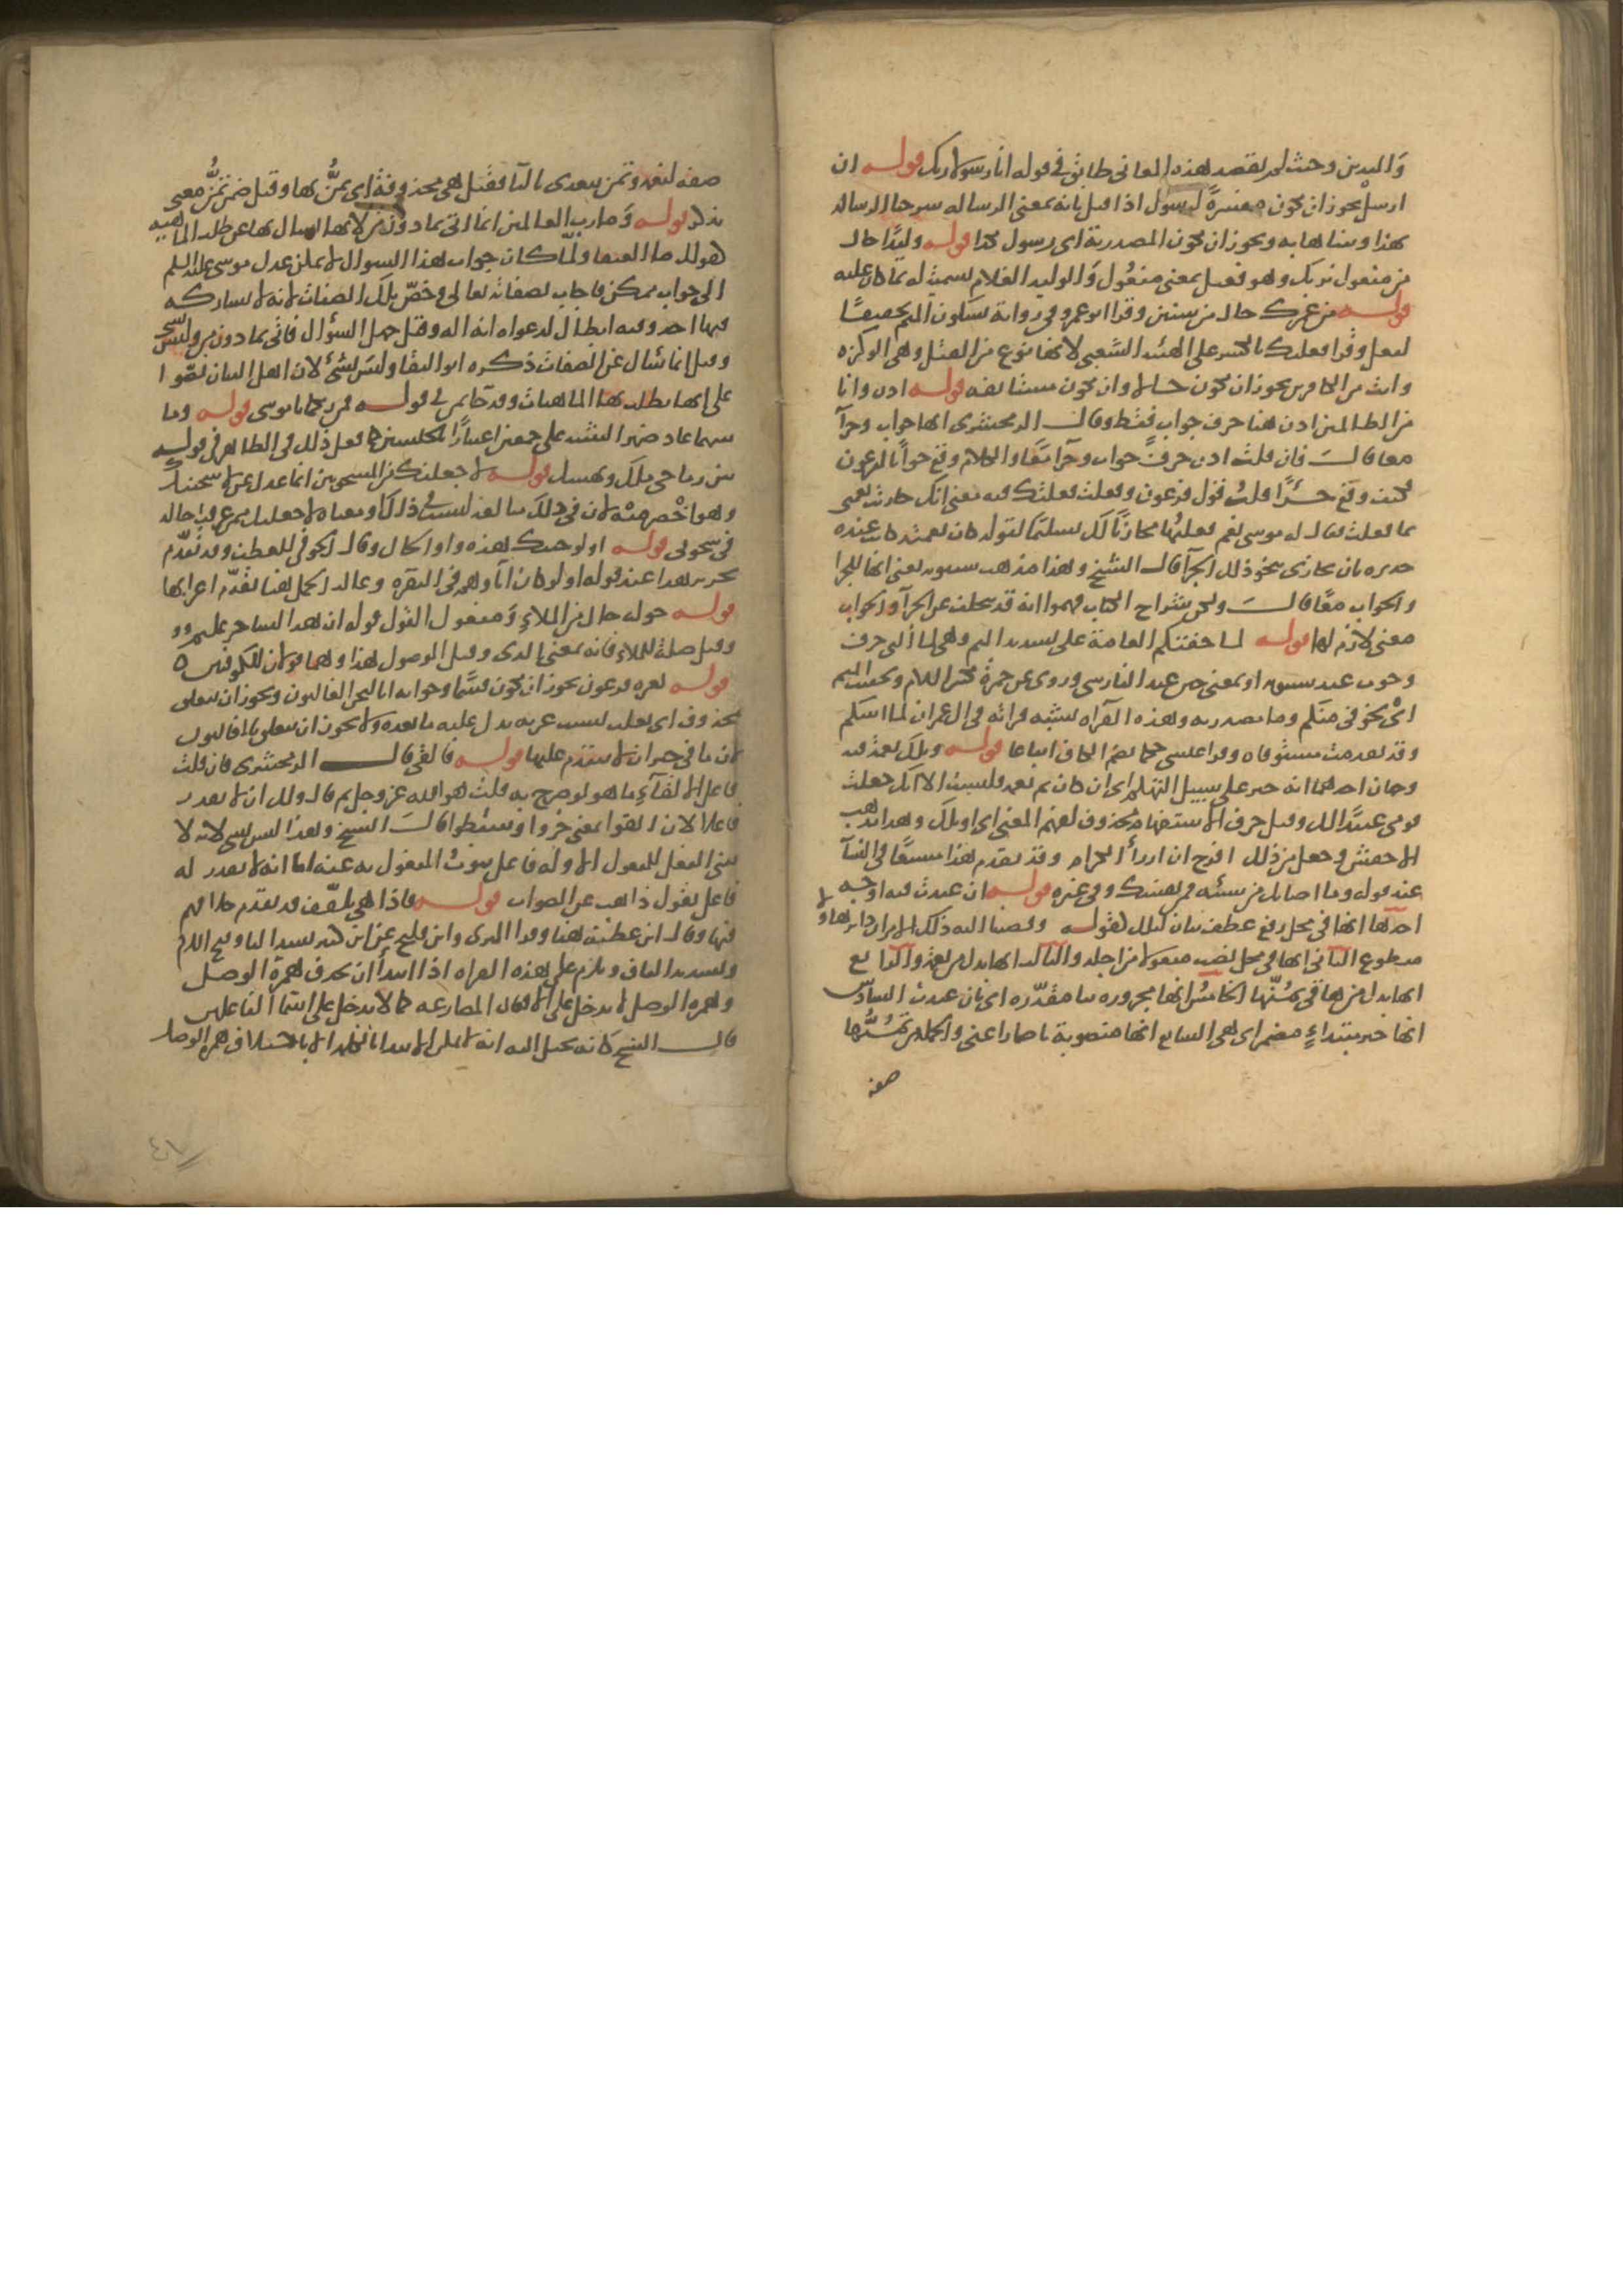 واليدين وحيث لم يقصد هذه المعاني طابق في قوله انا رسولا ربك قوله ان
ارسل يجوز ان تكون مفسرةً لرسول اذا قيل بانه بمعنى الرسالة شرحا الرسالة
بهذا وبيناها به ويجوز ان تكون المصدرية اي رسول بكذا قوله وليدًا حال
من مفعول نربك وهو فعيل بمعنى مفعُول والوليد الغلام تسمية له بما كان عليه
قوله من عمرك حال من سنين وقرا ابو عمرو في رواية بسكون الميم تخفيفًا
لفعل وقرا فعلتك بالكسر على الهيئة الشعبي لانها نوع من القتل وهي الوكزة
وانت من الكافرين يجوز ان تكون حالا وان تكون مستانفه قوله اذن وانا
من الضالين اذن هنا حرف جواب فقط وقال الزمخشري انها جواب وجزآ
معا قال فان قلت اذن حرف جواب وجزآ معًا والكلام وقع جوابًا لفرعون
فكيف وقع جزًا قلت قول فرعون وفعلت فعلتك فيه معنى انك جازيت نعمتي
بما فعلت فقال له موسى نعم فعلتها مجازيًا لك تسليمًا لقوله كان نعمته كانت عنده
جديرة بان تجازى بنحو ذلك الجزآ قال الشيخ وهذا مذهب سيبويه يعني انها للجزا
والجواب معًا قال ولكن شراح الكتاب فهموا انه قد تتخلف عن الجزآ والجواب
معنى لازم لها قوله لما خفتكم العامة على تشديد الميم وهي لما التي حرف
وجوب عند سيبويه او بمعنى حين عند الفارسي وروي عن حمزة بكسر اللام وتخفيف الميم
اي لتخوفي منكم وما مصدرية وهذه القراة تشبه قراته في ال عمران لما اتيتكم
وقد تقدمت مستوفاه وقرا عيسى حكما بضم الكاف اتباعا قوله وتلك نعمة فيه
وجهان احدهما انه خبر على سبيل التهكم اي ان كان ثم نعمة فليست الا انك جعلت
قومي عبيدًا لك وقيل حرف الاستفهام محذوف لفهم المعنى اي او تلك وهذا مذهب
الاخفش وجعل من ذلك افرح ان ارزأ الكرام وقد تقدم هذا مشبعًا في النسآ
عند قوله وما اصابك من سيئة فمن نفسك وفي غيره قوله ان عبدت فيه اوجه
احدها انها في محل رفع عطف بيان لتلك كقوله وقضينا اليه ذلك الامر ان دابر هاولا
مقطوع الثاني انها في محل نصب مفعولا من اجله والثالث انها بدل من نعمة والرابع
انها بدل من ها في تمنّها الخامس انها مجرورة ببا مقدّرة اي بان عبدت السادس
انها خبر مبتداءٍ مضمر اي هي السابع انها منصوبة باضمار اعني والجملة من تمنُّها
صفة
صفة لنعمة وتمن يتعدى بالبا فقيل هي محذوفة اي تمنُّ بها وقيل ضمن تمنُّ معنى
تذكر قوله وما رب العالمين انما اتى بما دون من لانها يسال بها عن طلب الماهية
كقولك ما العنقا ولمّا كان جواب هذا السوال لا يمكن عدل موسى عليه السلم
الى جواب ممكن فاجاب بصفاته تعالى وخصّ تلك الصفات لانه لا يشاركه
فيها احد وفيه ابطال لدعواه انه اله وقيل جهل السؤال فاتى بما دون من وليس بشي
وقيل انما سال عن الصفات ذكره ابو البقا وليس بشيء لان اهل البيان نصّوا
على انها يطلب بها الماهيات وقد جا بمن في قوله فمن ربكما يا موسى قوله وما
بينهما عاد ضمير التثنية على جمعين اعتبارًا بالجنسين كما فعل ذلك في الظاهر في قوله
بين رماحي مالك ونهشل قوله لاجعلنك من المسجونين انما عدل عن لاسجننك
وهو اخصر منه لان في ذلك مبالغة ليست في ذاك او معناه لاجعلنك ممن عرفت حاله
في سجوني قوله اولو جيتك هذه واو الحال وقال الحوفي للعطف وقد تقدّم
تحرير هذا عند قوله اولو كان اباوهم في البقرة وغالب الجمل هنا تقدّم اعرابها
قوله حوله حال من الملاءِ ومفعول القول قوله ان هذا لساحر عليم
وقيل صلة للملاءِ فانه بمعنى الذي وقيل الموصول هذا وهما قولان للكوفيين
قوله بعزة فرعون يجوز ان تكون قسمًا وجوابه انا لنحن الغالبون ويجوز ان تتعلق
بمحذوف اي نغلب بسبب عزته يدل عليه ما بعده ولا يجوز ان تتعلق بالغالبون
لان ما في حيز ان لا يتقدم عليها قوله فالقي قال الزمخشري فان قلت
فاعل الالقآءِ ما هو لو صرح به قلت هو الله عز وجل ثم قال ولك ان لا تقدر
فاعلا لان القوا بمعنى خروا وسقطوا قال الشيخ وهذا ليس بشي لانه لا
يبنى الفعل للمفعول الا وله فاعل ينوبُ المفعول به عنه اما انه لا يقدر له
فاعل فقول ذاهب عن الصواب قوله فاذا هي تلقّف قد تقدم خلافهم
فيها وقال ابن عطية هنا وقرا البزي وابن فليح عن ابن كثير بشد التا وفتح اللام
وتشديد القاف ويلزم على هذه القراة اذا ابتدأ ان يحذف همزة الوصل
وهمزة الوصل لا تدخل على الافعال المضارعة كما لا تدخل على اسما الفاعلين
قال الشيخ كانه يخيل اليه انه لا يمكن الابتدا بالكلمة الا باجتلاف همزة الوصل